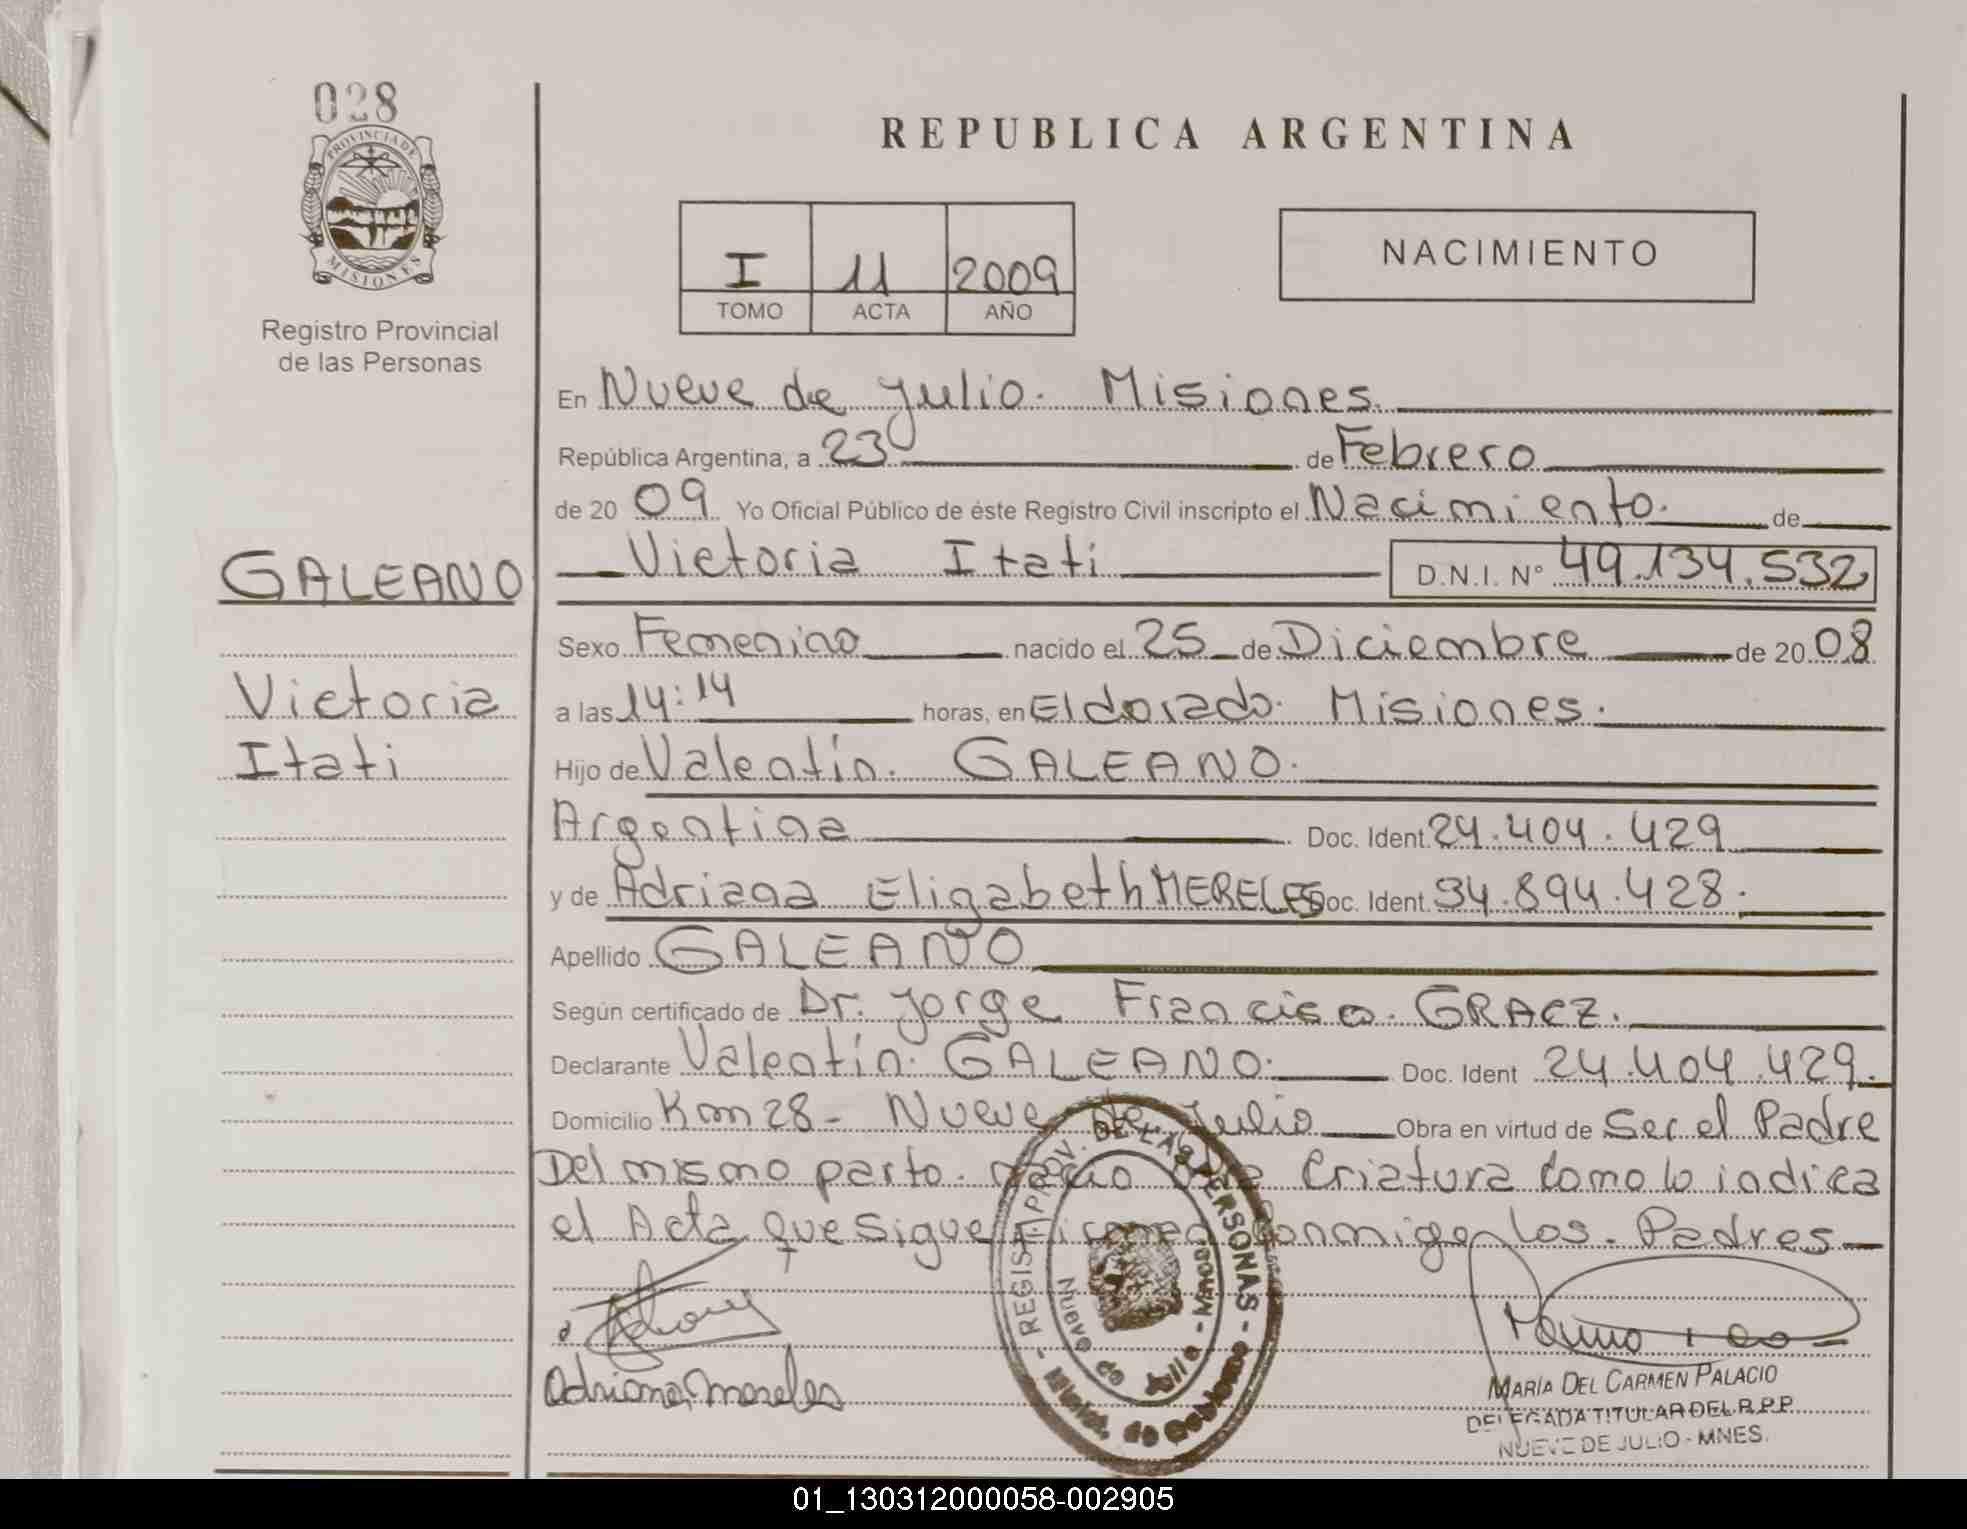 028
PROVINCIA DE
MISIONES
Registro Provincial
de las Personas
REPUBLICA ARGENTINA
I 11 2009
TOMO ACTA AÑO
NACIMIENTO
En Nueve de Julio. Misiones.
República Argentina, a 23 de Febrero
de 20 09 Yo Oficial Público de éste Registro Civil inscripto el Nacimiento. de
GALEANO
Victoria Itati
Victoria Itati D.N.I. Nº 49.134.532
Sexo Femenino nacido el 25 de Diciembre de 20 08
a las 14:14 horas, en Eldorado. Misiones.
Hijo de Valentín. GALEANO.
Argentina Doc. Ident. 24.404.429
y de Adriana Elizabeth MERELES Doc. Ident. 34.894.428.
Apellido GALEANO
Según certificado de Dr. Jorge Francisco. GRAEZ.
Declarante Valentín. GALEANO. Doc. Ident 24.404.429.
Domicilio Km 28 - Nueve de Julio Obra en virtud de Ser el Padre
Del mismo parto. nacio otra Criatura como lo indica
el Acta que sigue Firman conmigo los. Padres
REGIST. PROV. DE LAS PERSONAS - Minist. de Gobierno -
Nueve de Julio - Mnes
Adriana Mereles
MARÍA DEL CARMEN PALACIO
DELEGADA TITULAR DEL R.P.P.
NUEVE DE JULIO - MNES.
01_130312000058-002905